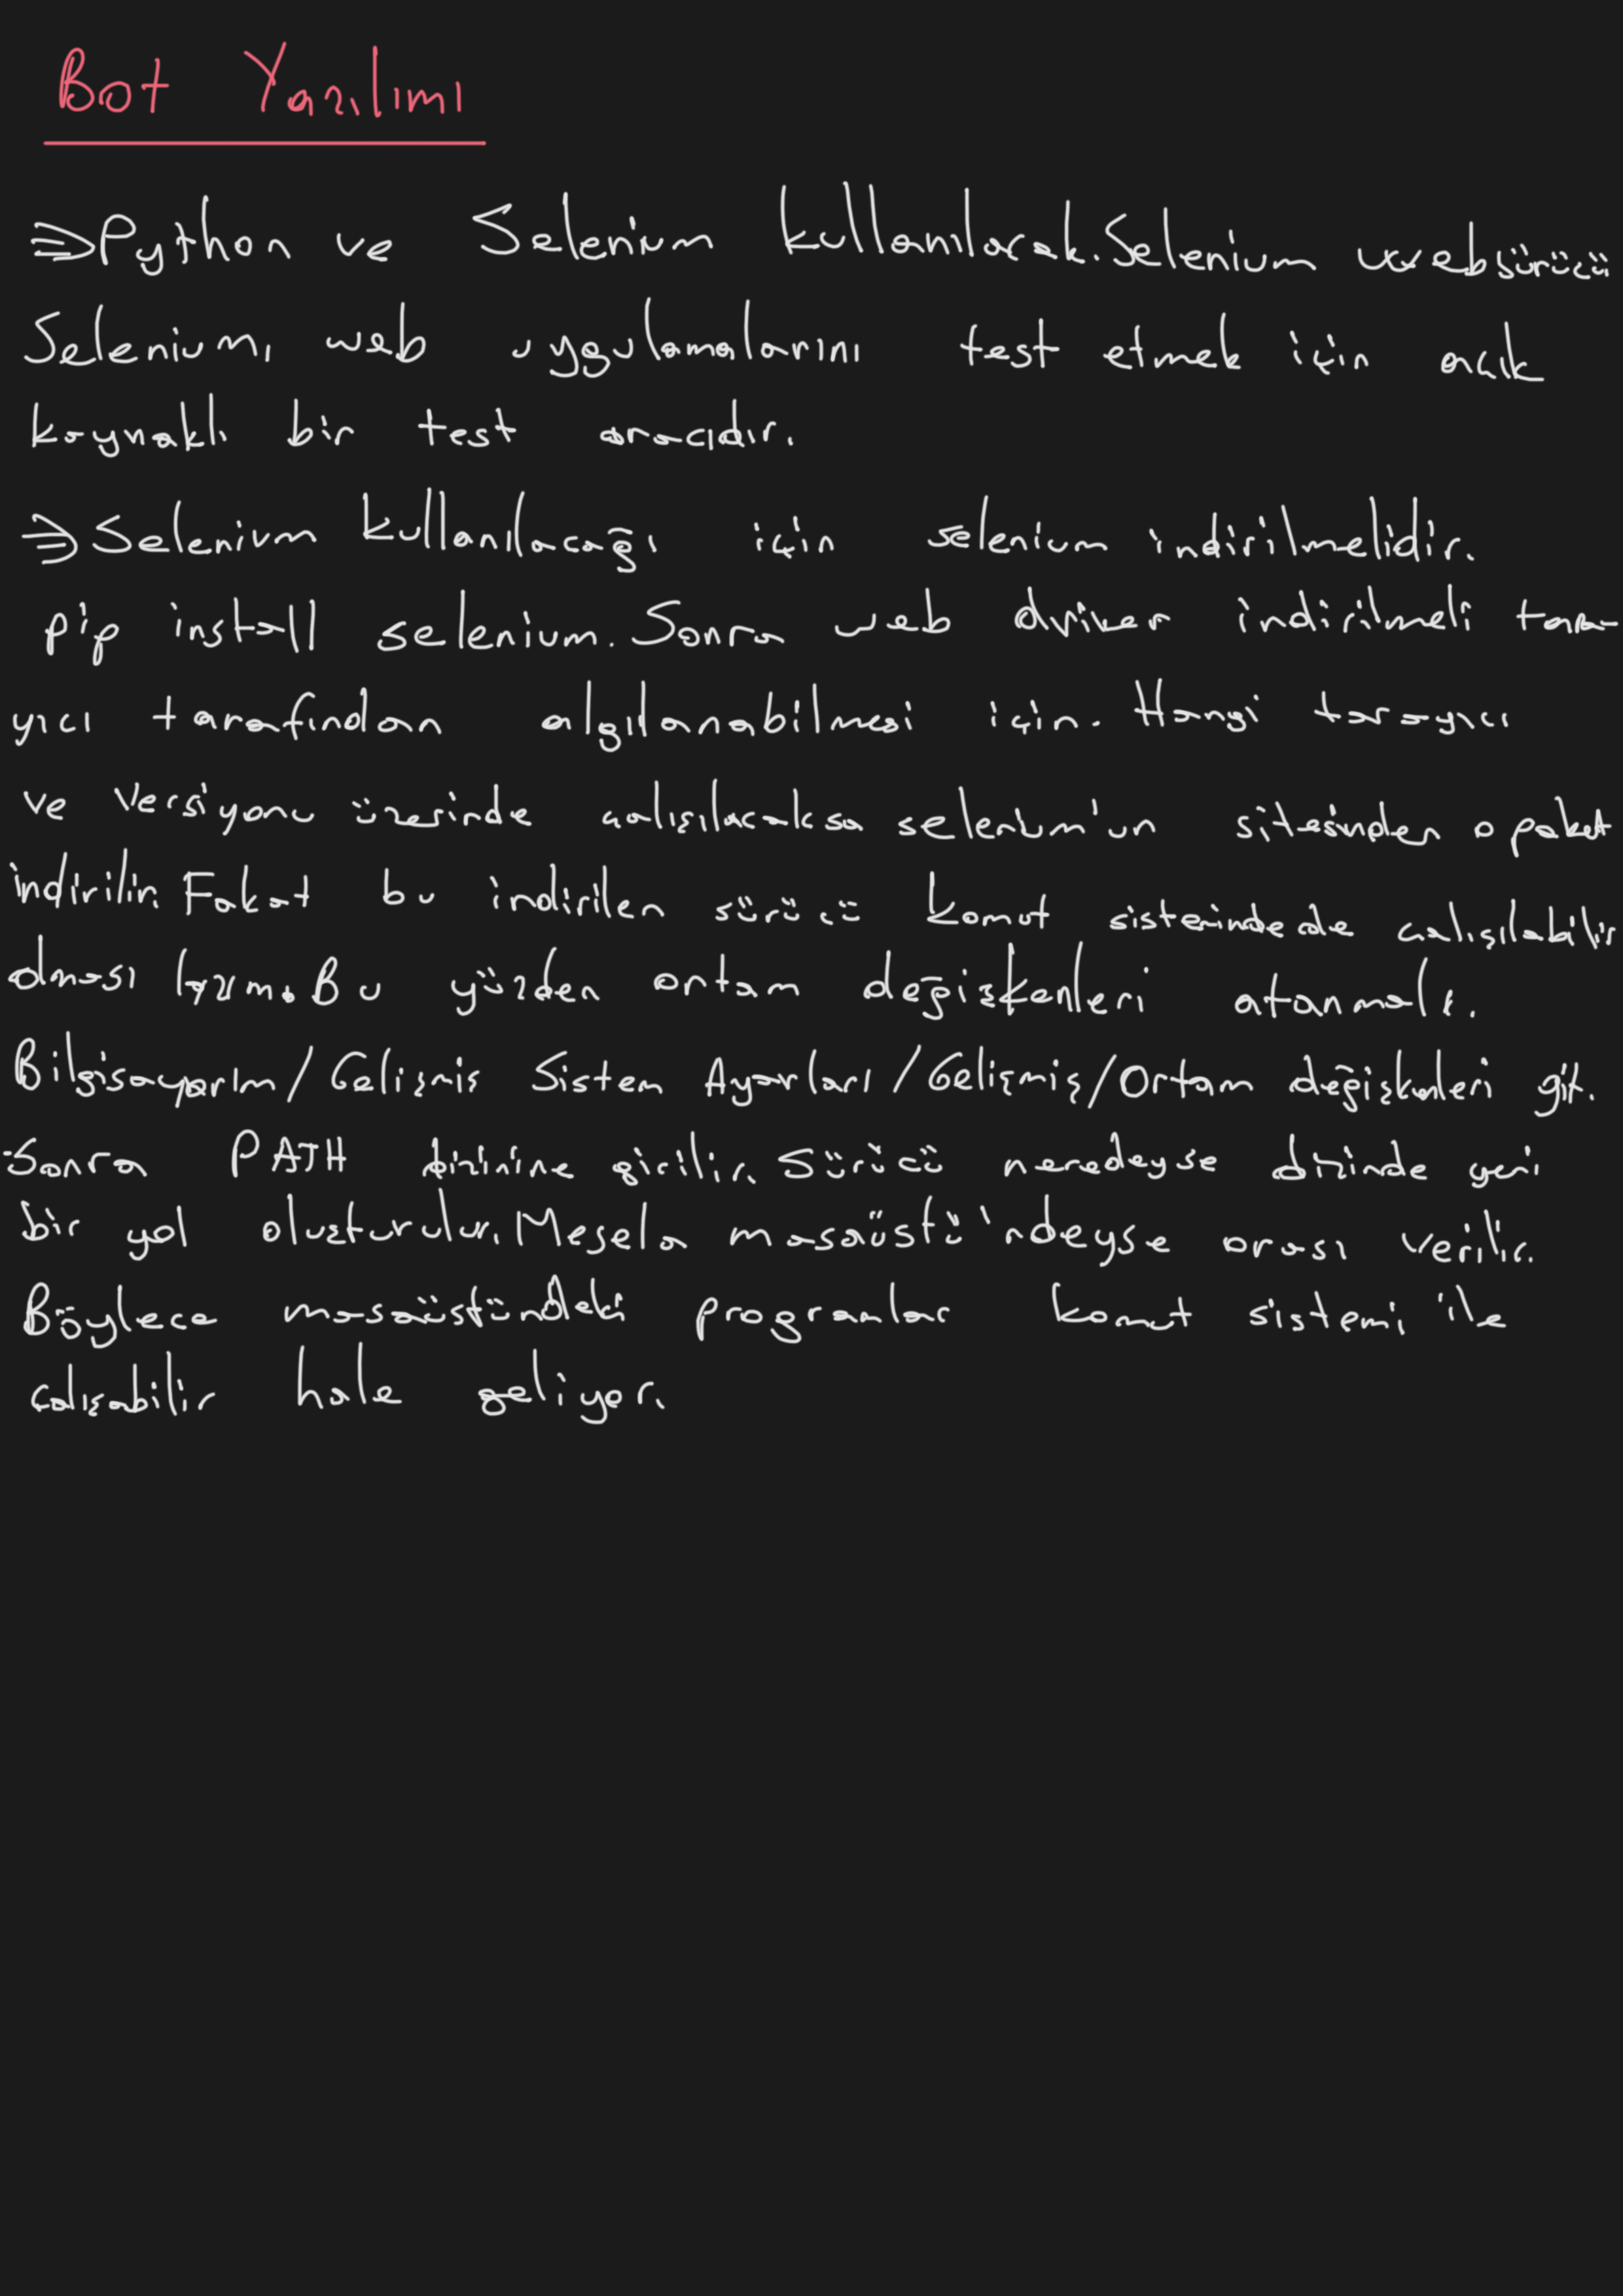 Bot Yazılımı
⇒Python ve Selenium kullanılacak. Selenium web sürücü
Selenium, web uygulamalarını test etmek için açık
kaynaklı bir test aracıdır.
⇒Selenium kullanılacağı için selenium indirilmelidir.
pip install selenium. Sonra web driver indirilmeli tara-
yıcı tarafından algılanabilmesi için. Hangi tarayıcı
ve versiyonu üzerinde çalışılacaksa selenium'un sitesinden o paket
indirilir. Fakat bu indirilen sürücü komut sisteminde de çalışılabilir
olması lazım. Bu yüzden ortam değişkenleri atanmalı.
Bilgisayarım/Gelişmiş Sistem Ayarları/Gelişmiş/Ortam değişkenleri git.
Sonra PATH dizinine girilir. Sürücü neredeyse dizinde yeni
bir yol oluşturulur. Mesela masaüstü'ndeyse orası verilir.
Böylece masaüstündeki programlar komut sistemi ile
çalışabilir hale geliyor.